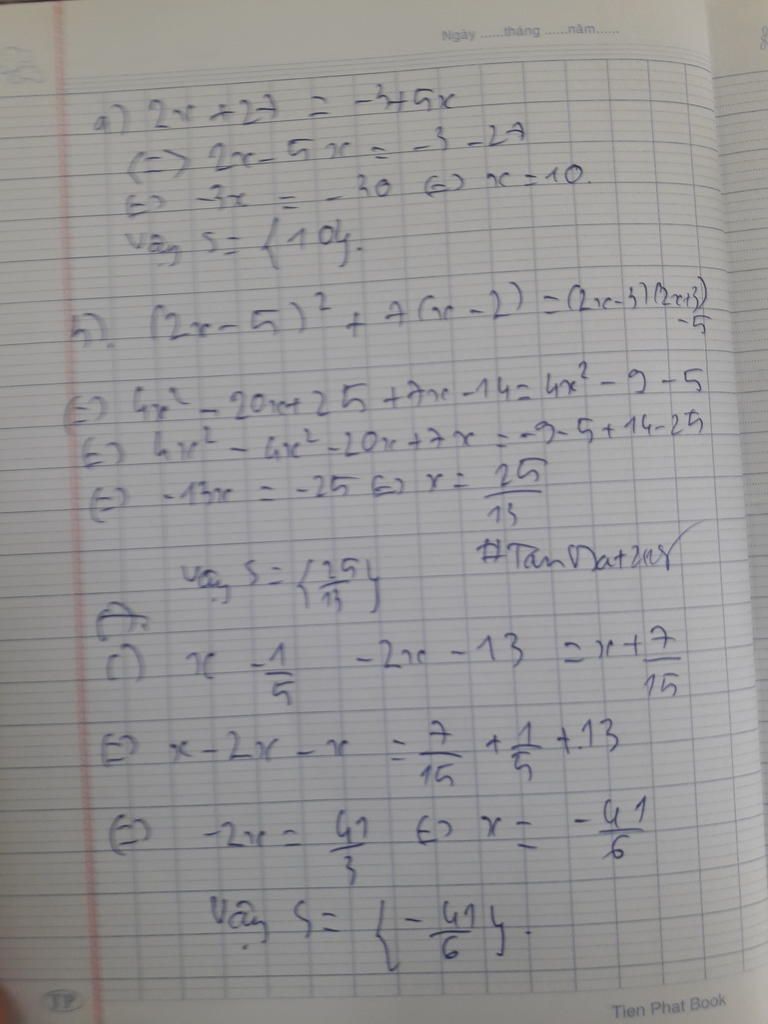 Ngày ......tháng ......năm......
a) 2x + 27 = -3 + 5x
(=) 2x - 5x = -3 - 27
(=) -3x = -30 (=) x = 10.
Vậy S = {10}.
b). (2x - 5)² + 7(x - 2) = (2x - 3)(2x + 3)
- 5
(=) 4x² - 20x + 25 + 7x - 14 = 4x² - 9 - 5
(=) 4x² - 4x² - 20x + 7x = -9 - 5 + 14 - 25
(=) -13x = -25 (=) x = 25/13
Vậy S = {25/13}
c) x - 1/5 - 2x - 13 = x + 7/15
(=) x - 2x - x = 7/15 + 1/5 + 13
(=) -2x = 41/3 (=) x = -41/6
Vậy S = {-41/6}.
TP
Tien Phat Book